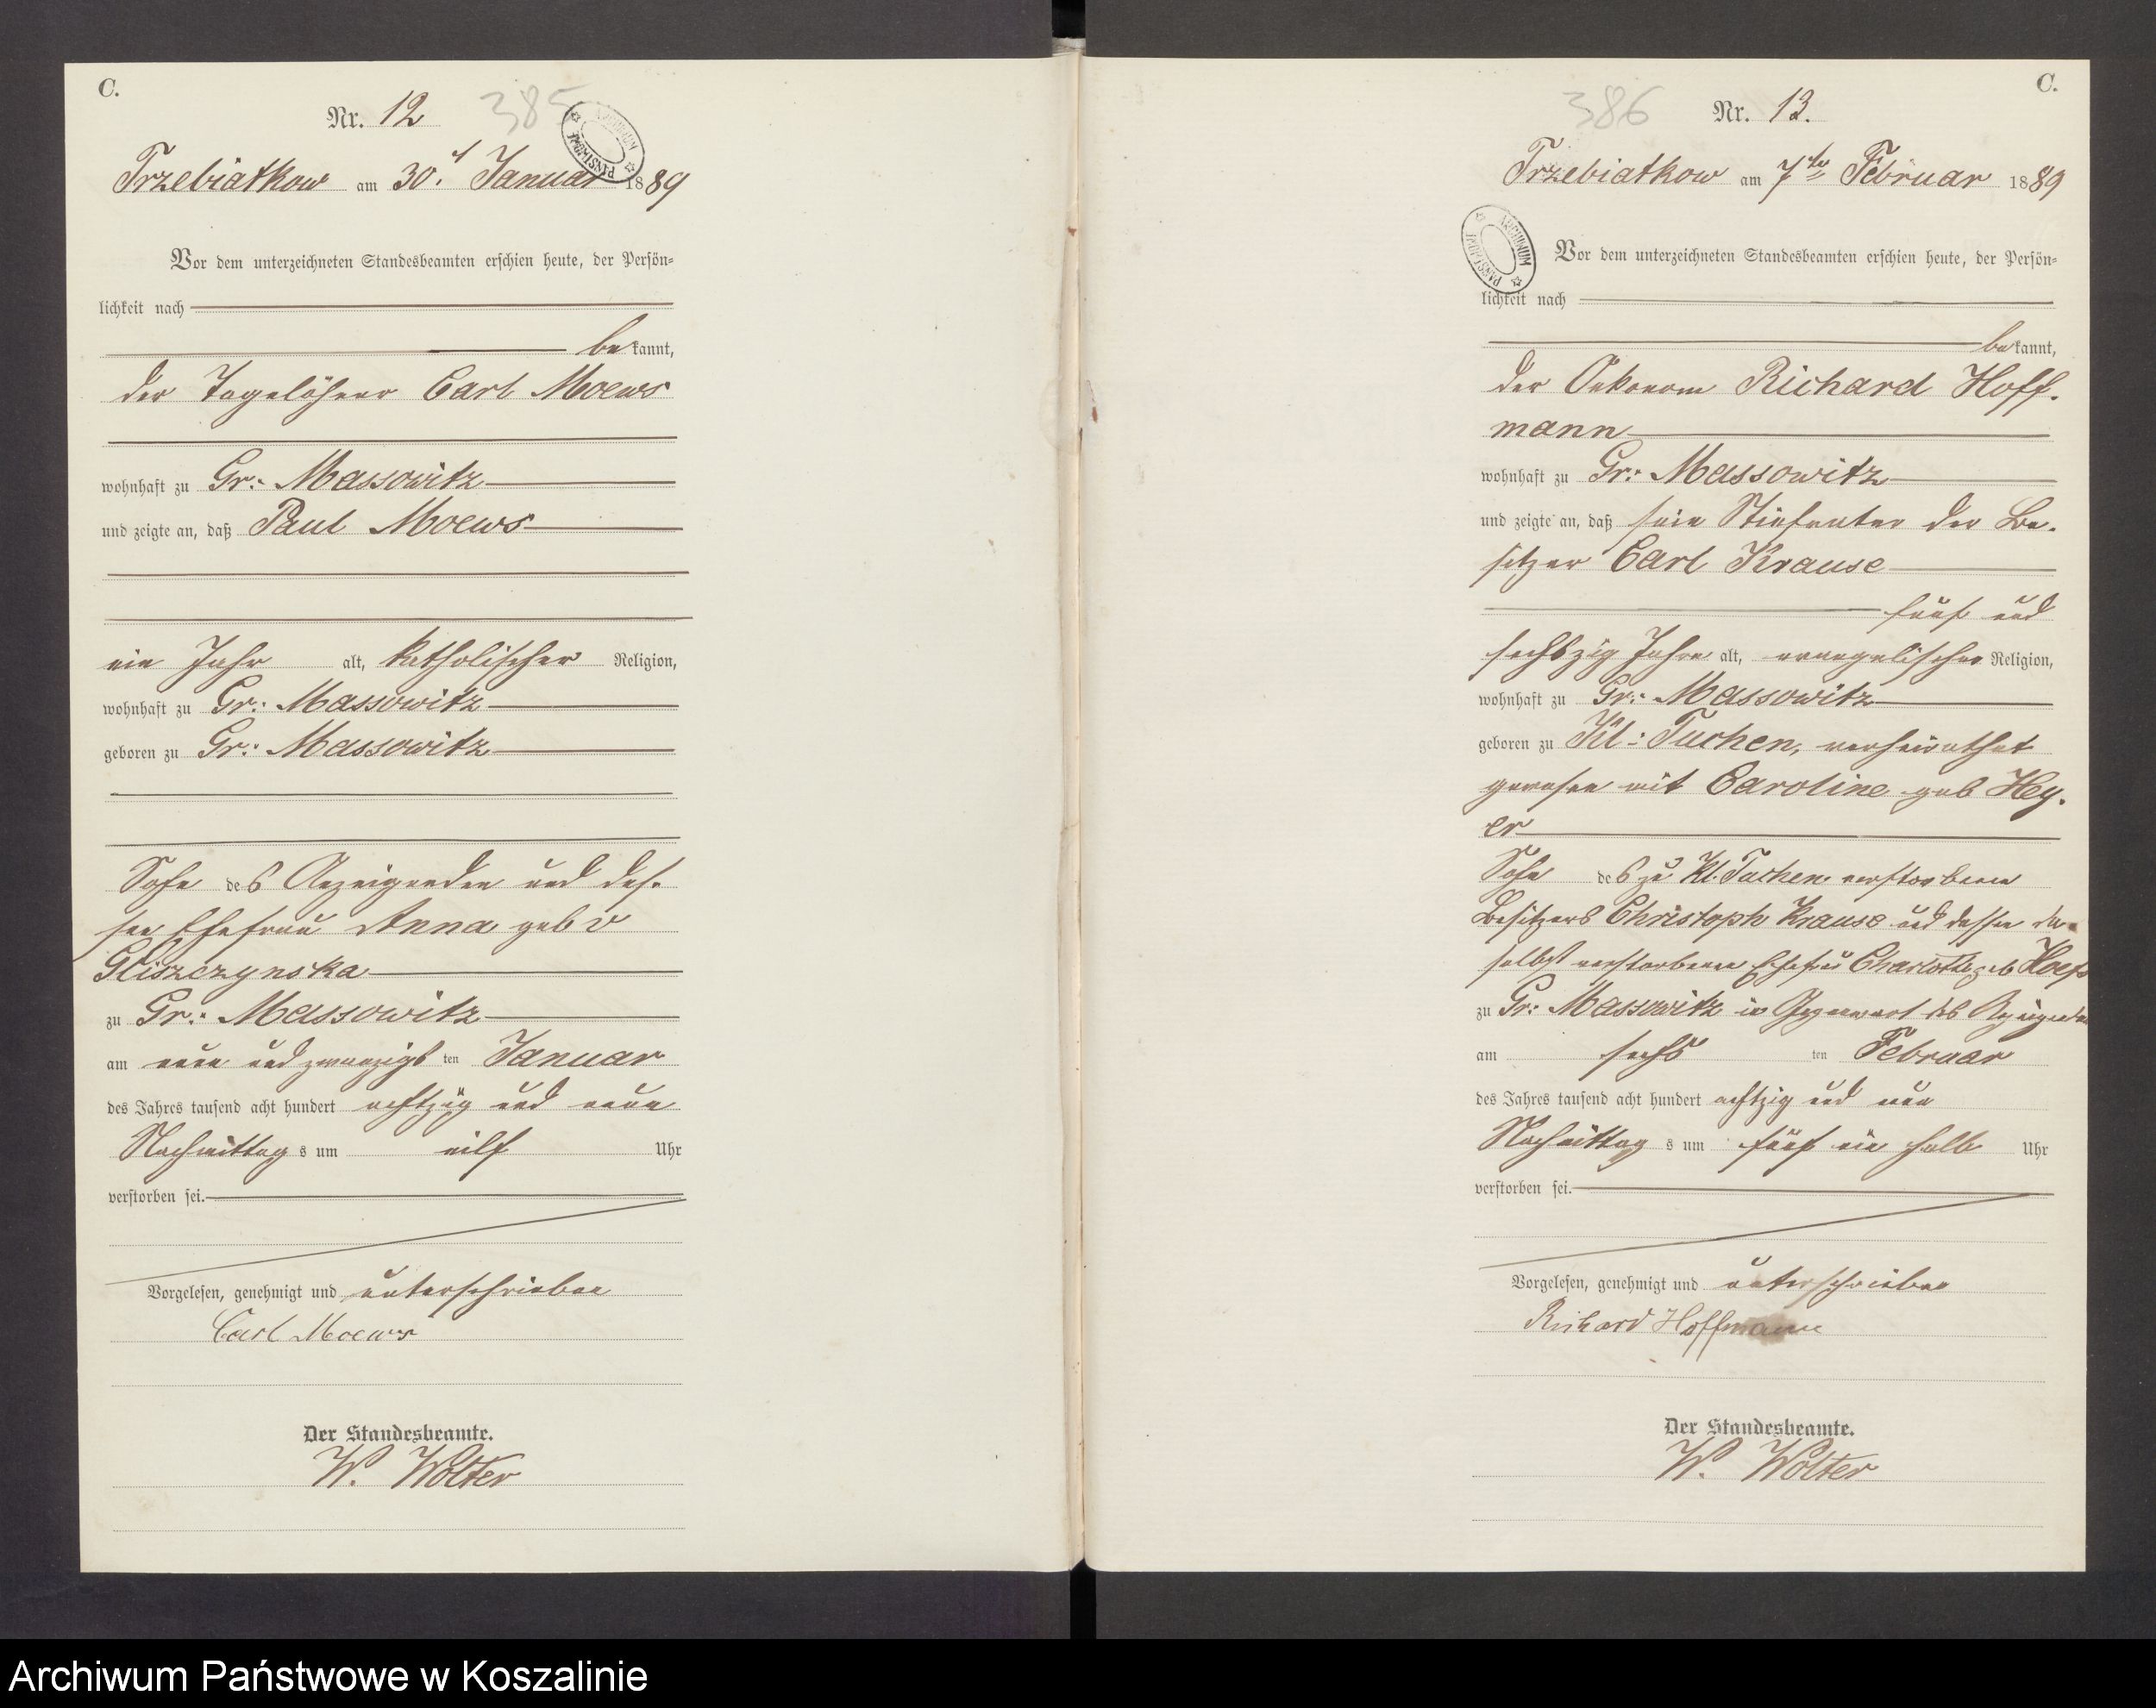 C.
Nr. 12
385
ARCHIWUM PAŃSTWOWE
Trzebiatkow am 30. Januar 1889
Vor dem unterzeichneten Standesbeamten erschien heute, der Persön-
lichkeit nach
bekannt,
der Tagelöhner Carl Moews
wohnhaft zu Gr: Massowitz
und zeigte an, daß Paul Moews
ein Jahr alt, katholischer Religion,
wohnhaft zu Gr: Massowitz
geboren zu Gr: Massowitz
Sohn des Anzeigenden und des-
sen Ehefrau Anna geb v
Gliszczynska
zu Gr: Massowitz
am neun und zwanzigsten Januar
des Jahres tausend acht hundert achtzig und neun
Nachmittags um eilf Uhr
verstorben sei.
Vorgelesen, genehmigt und unterschrieben
Carl Moews
Der Standesbeamte.
W. Wolter
C.
386
Nr. 13.
Trzebiatkow am 7ten Februar 1889
ARCHIWUM PAŃSTWOWE
Vor dem unterzeichneten Standesbeamten erschien heute, der Persön-
lichkeit nach
bekannt,
der Oekonom Richard Hoff-
mann
wohnhaft zu Gr: Massowitz
und zeigte an, daß sein Stiefvater der Be-
sitzer Carl Krause
fünf und
sechszig Jahre alt, evangelischer Religion,
wohnhaft zu Gr: Massowitz
geboren zu Kl: Tuchen, verheirathet
gewesen mit Caroline geb Hey-
er
Sohn des zu Kl. Tuchen verstorbenen
Besitzers Christoph Krause und dessen da-
selbst verstorbenen Ehefrau Charlotte geb
zu Gr: Massowitz in Gegenwart des Anzeigenden
am sechsten Februar
des Jahres tausend acht hundert achtzig und neun
Nachmittags um fünf ein halb Uhr
verstorben sei.
Vorgelesen, genehmigt und unterschrieben
Richard Hoffmann
Der Standesbeamte.
W. Wolter
Archiwum Państwowe w Koszalinie